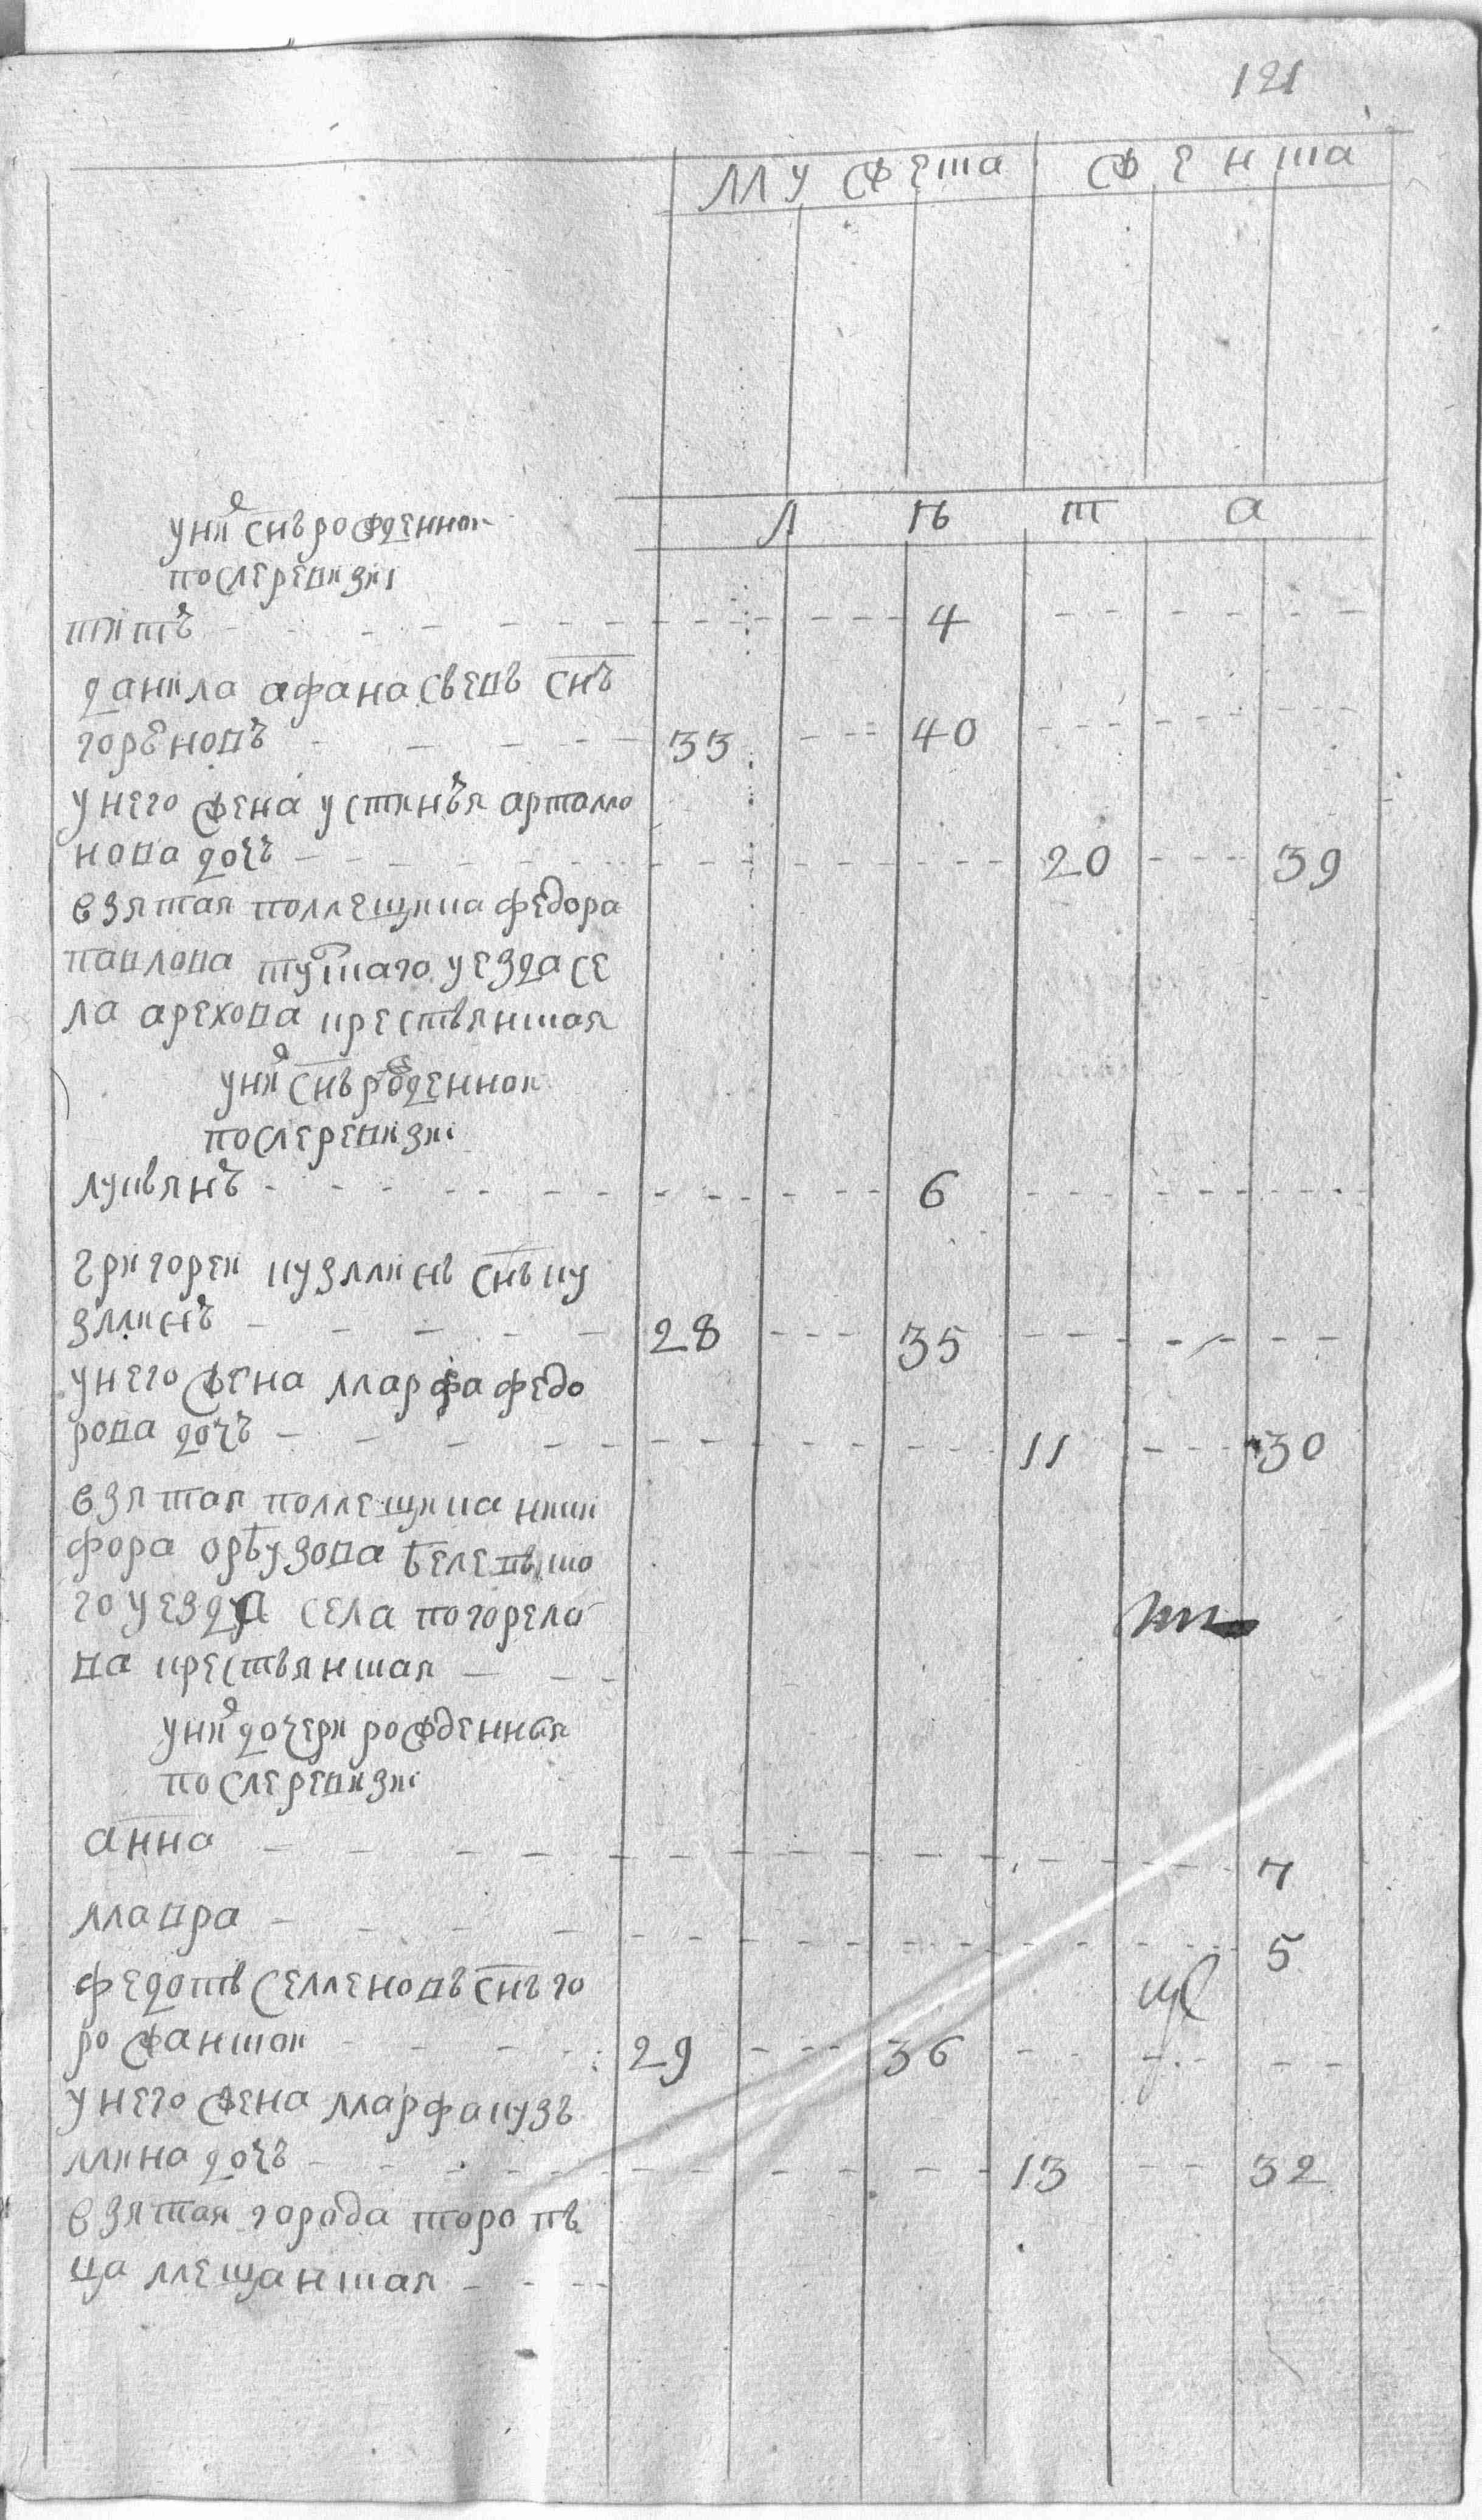 121
мужеска женска
лѣта
у них снъ рожденной
после ревизиi
титъ - - - 4 - - -
данила афанасьевъ снъ
горѣновъ - - - 33 - - - 40 - - -
у него жена устинья артамо
нова дочь - - - 20 - - - 39
взятая помещика федора
павлова туѿцкаго уезда се
ла арехова крестьянская
у них снъ рожденной
после ревизиi
лукьянъ - - - 6 - - -
григореи кузминъ снъ ку
зминъ - - - 28 - - - 35 - - -
у него жена марфа федо
рова дочь - - - 11 - - - 30
взятая помещика ники
фора арбузова белевско
го уезда села погорело
ва крестьянская - - -
у них дочери рожденныя
после ревизиi
анна - - - 7
мавра - - - 5
федотъ семеновъ снъ го
рожанкои - - - 29 - - - 36 - - -
у него жена марфа кузь
мина дочь - - - 13 - - - 32
взятая города торопь
ца мещанская - - -